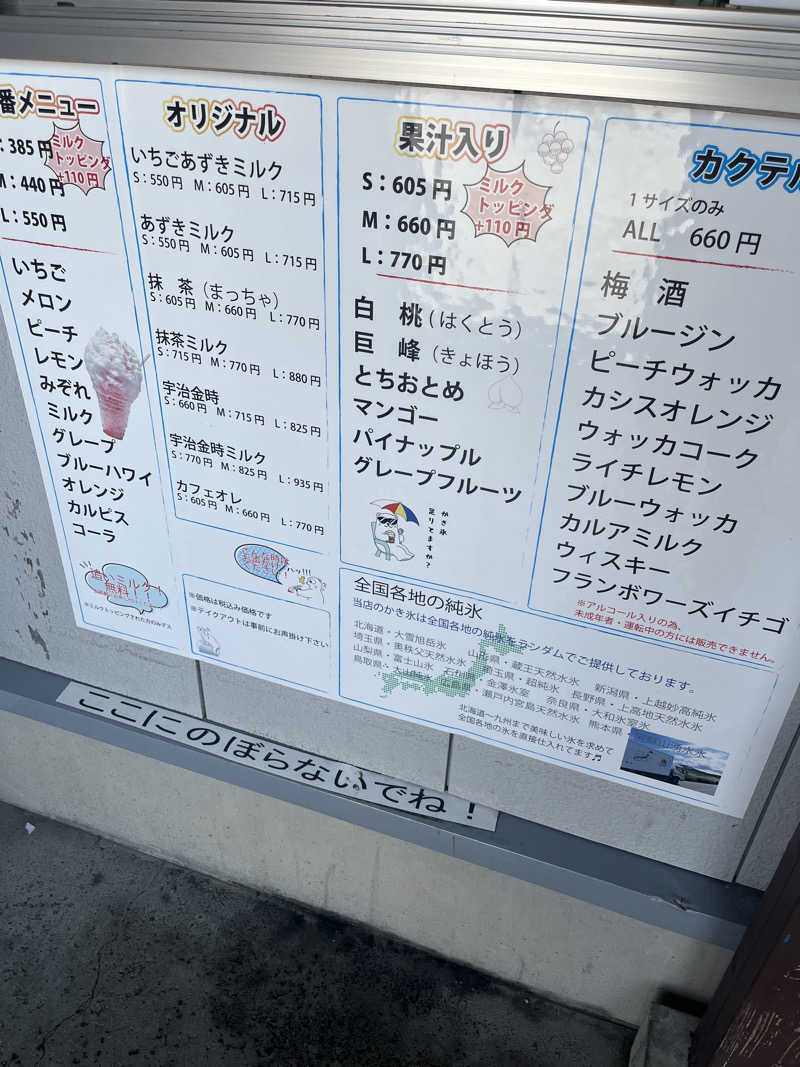 番メニュー
: 385円
M : 440円
L : 550円
ミルク
トッピング
+110円
いちご
メロン
ピーチ
レモン
みぞれ
ミルク
グレープ
ブルーハワイ
オレンジ
カルピス
コーラ
追いミルク
無料!
※ミルクトッピングされた方のみデス
オリジナル
いちごあずきミルク
S : 550円 M : 605円 L : 715円
あずきミルク
S : 550円 M : 605円 L : 715円
抹 茶 (まっちゃ)
S : 605円 M : 660円 L : 770円
抹茶ミルク
S : 715円 M : 770円 L : 880円
宇治金時
S : 660円 M : 715円 L : 825円
宇治金時ミルク
S : 770円 M : 825円 L : 935円
カフェオレ
S : 605円 M : 660円 L : 770円
ハッ!!!
※価格は税込み価格です
※テイクアウトは事前にお声掛け下さい
果汁入り
S : 605円
M : 660円
L : 770円
ミルク
トッピング
+110円
白 桃 (はくとう)
巨 峰 (きょほう)
とちおとめ
マンゴー
パイナップル
グレープフルーツ
かき氷
足りてますか?
カクテル
1サイズのみ
ALL 660円
梅 酒
ブルージン
ピーチウォッカ
カシスオレンジ
ウォッカコーク
ライチレモン
ブルーウォッカ
カルアミルク
ウィスキー
フランボワーズイチゴ
※アルコール入りの為、
未成年者・運転中の方には販売できません。
全国各地の純氷
当店のかき氷は全国各地の純氷をランダムでご提供しております。
北海道・大雪旭岳氷 山形県・蔵王天然水氷 新潟県・上越妙高純氷
埼玉県・奥秩父天然水氷 埼玉県・超純氷 長野県・上高地天然水氷
山梨県・富士山氷 石川県・金澤氷室 奈良県・大和氷室氷
鳥取県・大山純氷 広島県・瀬戸内宮島天然水氷 熊本県・
北海道~九州まで美味しい氷を求めて
全国各地の氷を直接仕入れてます♬
ここにのぼらないでね!